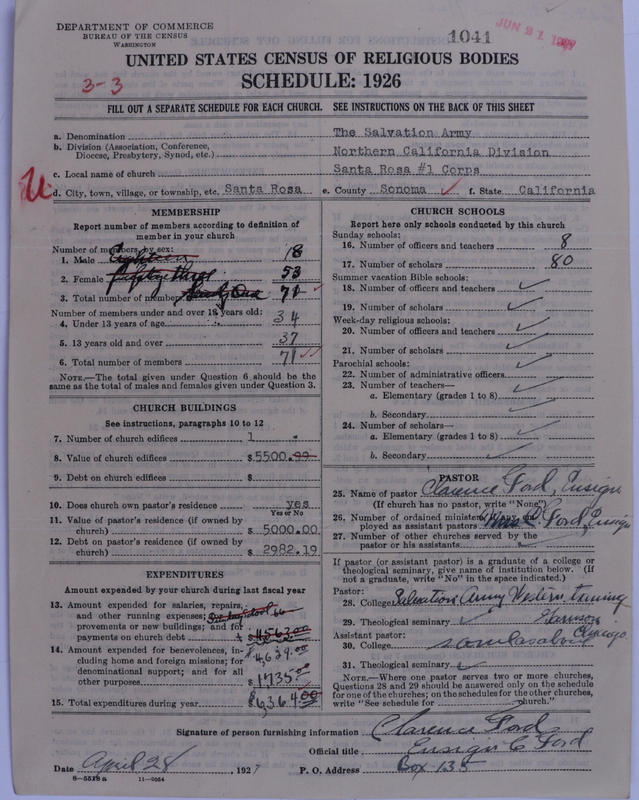 DEPARTMENT OF COMMERCE
BUREAU OF THE CENSUS
WASHINGTON
1041
JUN 21 1927
UNITED STATES CENSUS OF RELIGIOUS BODIES
3-3
SCHEDULE: 1926
FILL OUT A SEPARATE SCHEDULE FOR EACH CHURCH. SEE INSTRUCTIONS ON THE BACK OF THIS SHEET
a. Denomination The Salvation Army
b. Division (Association, Conference, Diocese, Presbytery, Synod, etc.) Northern California Division
c. Local name of church Santa Rosa #1 Corps
d. City, town, village, or township, etc. Santa Rosa e. County Sonoma ✓ f. State California
MEMBERSHIP
Report number of members according to definition of
member in your church
Number of members by sex:
1. Male Eighteen 18
2. Female fifty three 53
3. Total number of members Seventy One 71 ✓
Number of members under and over 13 years old:
4. Under 13 years of age 34
5. 13 years old and over 37
6. Total number of members 71 ✓✓
NOTE.—The total given under Question 6 should be the
same as the total of males and females given under Question 3.
CHURCH BUILDINGS
See instructions, paragraphs 10 to 12
7. Number of church edifices 1
8. Value of church edifices $ 5500.
9. Debt on church edifices $
10. Does church own pastor's residence yes
Yes or No
11. Value of pastor's residence (if owned by
church) $ 5000.00
12. Debt on pastor's residence (if owned by
church) $ 2982.19
EXPENDITURES
Amount expended by your church during last fiscal year
13. Amount expended for salaries, repairs,
and other running expenses;
provements or new buildings; and for
payments on church debt $
$ 4639.00
14. Amount expended for benevolences, in-
cluding home and foreign missions; for
denominational support; and for all
other purposes $ 1735.00
15. Total expenditures during year $ 6364.00
CHURCH SCHOOLS
Report here only schools conducted by this church
Sunday schools:
16. Number of officers and teachers 8
17. Number of scholars 80
Summer vacation Bible schools:
18. Number of officers and teachers ✓
19. Number of scholars ✓
Week-day religious schools:
20. Number of officers and teachers ✓
21. Number of scholars ✓
Parochial schools:
22. Number of administrative officers ✓
23. Number of teachers—
a. Elementary (grades 1 to 8) ✓
b. Secondary ✓
24. Number of scholars—
a. Elementary (grades 1 to 8) ✓
b. Secondary ✓
PASTOR
25. Name of pastor Clarence Ford, Ensign
(If church has no pastor, write "None")
26. Number of ordained ministers em-
ployed as assistant pastors Ford, Ensign
27. Number of other churches served by the
pastor or his assistants
If pastor (or assistant pastor) is a graduate of a college or
theological seminary, give name of institution below. (If
not a graduate, write "No" in the space indicated.)
Pastor:
28. College Salvation Army Western training
29. Theological seminary ✓
Assistant pastor: Chicago
30. College same as above
31. Theological seminary ✓
NOTE.—Where one pastor serves two or more churches,
Questions 28 and 29 should be answered only on the schedule
for one of the churches; on the schedules for the other churches,
write "See schedule for church."
Signature of person furnishing information Clarence Ford
Official title Ensign C Ford
Date April 28, 1927 P. O. Address Box 135
8-5518 a 11-9054